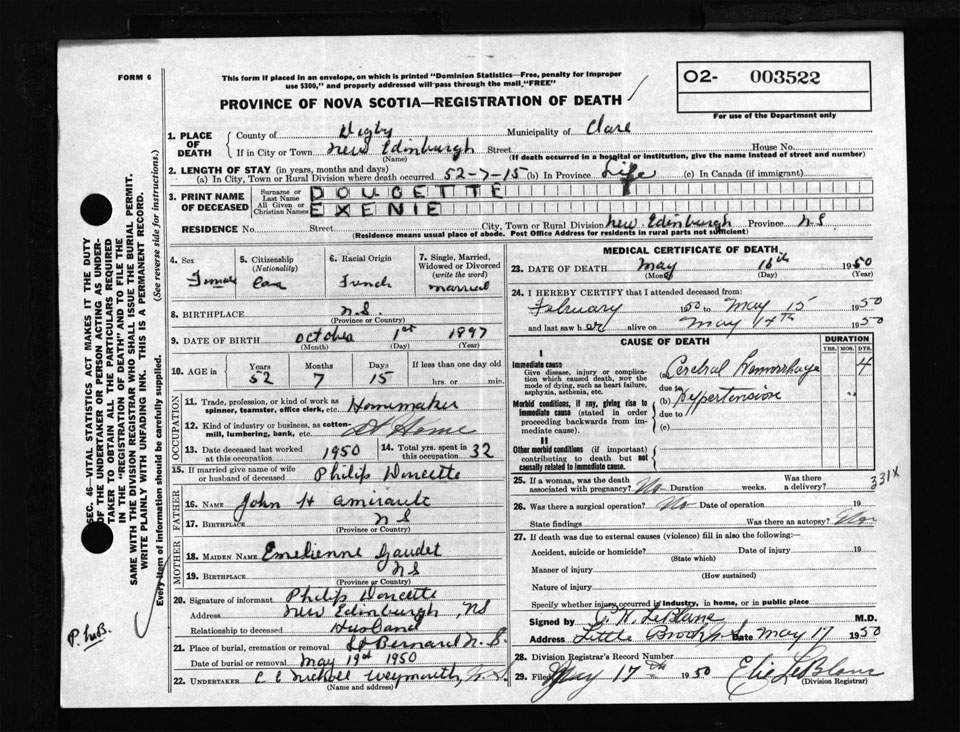 FORM 6
This form if placed in an envelope, on which is printed "Dominion Statistics—Free, penalty for improper
use $300," and properly addressed will pass through the mail "FREE"
O2- 003522
For use of the Department only
PROVINCE OF NOVA SCOTIA—REGISTRATION OF DEATH
1. PLACE OF DEATH
County of Digby Municipality of Clare
If in City or Town New Edinburgh Street House No.
(Name) (If death occurred in a hospital or institution, give the name instead of street and number)
2. LENGTH OF STAY (in years, months and days)
(a) In City, Town or Rural Division where death occurred 52-7-15 (b) In Province Life (c) In Canada (if immigrant)
3. PRINT NAME OF DECEASED
Surname or Last Name DOUCETTE
All Given or Christian Names EXENIE
RESIDENCE No. Street City, Town or Rural Division New Edinburgh Province N.S
(Residence means usual place of abode. Post Office Address for residents in rural parts not sufficient)
4. Sex Female
5. Citizenship (Nationality) Cana
6. Racial Origin French
7. Single, Married, Widowed or Divorced (write the word) married
8. BIRTHPLACE N.S.
(Province or Country)
9. DATE OF BIRTH October 1st 1897
(Month) (Day) (Year)
10. AGE in Years 52 Months 7 Days 15 If less than one day old hrs. or min.
OCCUPATION
11. Trade, profession, or kind of work as spinner, teamster, office clerk, etc. Homemaker
12. Kind of industry or business, as cotton-mill, lumbering, bank, etc. At Home
13. Date deceased last worked at this occupation 1950
14. Total yrs. spent in this occupation 32
15. If married give name of wife or husband of deceased Philip Doucette
FATHER
16. NAME John H Amirault
17. BIRTHPLACE N S
(Province or Country)
MOTHER
18. MAIDEN NAME Emelienne Gaudet
19. BIRTHPLACE N S
(Province or Country)
20. Signature of informant Philip Doucette
Address New Edinburgh, NS
Relationship to deceased Husband
21. Place of burial, cremation or removal St Bernard N. S.
Date of burial or removal May 19th 1950
22. UNDERTAKER C E Nickoll Weymouth, N.S
(Name and address)
MEDICAL CERTIFICATE OF DEATH
23. DATE OF DEATH May 16th 1950
(Month) (Day) (Year)
24. I HEREBY CERTIFY that I attended deceased from:
February 1950 to May 15 1950
and last saw her alive on May 14th 1950
CAUSE OF DEATH
DURATION
YRS. MOS. DYS.
I
Immediate cause
Give disease, injury or complication which caused death, NOT the mode of dying, such as heart failure, asphyxia, asthenia, etc.
(a) Cerebral Hemorrhage 4
due to
Morbid conditions, if any, giving rise to immediate cause (stated in order proceeding backwards from immediate cause).
(b) Hypertension
due to
(c)
II
Other morbid conditions (if important) contributing to death but not causally related to immediate cause.
25. If a woman, was the death associated with pregnancy? No Duration weeks. Was there a delivery?
331X
26. Was there a surgical operation? No Date of operation 19
State findings Was there an autopsy?
27. If death was due to external causes (violence) fill in also the following:—
Accident, suicide or homicide? Date of injury 19
(State which)
Manner of injury
(How sustained)
Nature of injury
Specify whether injury occurred in industry, in home, or in public place
Signed by LeBlanc M.D.
Address Little Brook N.S Date May 17 1950
28. Division Registrar's Record Number
29. Filed May 17th 1950 Elie LeBlanc
(Division Registrar)
SEC. 46—VITAL STATISTICS ACT MAKES IT THE DUTY
OF THE UNDERTAKER OR PERSON ACTING AS UNDER-
TAKER TO OBTAIN ALL THE PARTICULARS REQUIRED
IN THE "REGISTRATION OF DEATH" AND TO FILE THE
SAME WITH THE DIVISION REGISTRAR WHO SHALL ISSUE THE BURIAL PERMIT.
WRITE PLAINLY WITH UNFADING INK. THIS IS A PERMANENT RECORD.
Every item of information should be carefully supplied. (See reverse side for instructions.)